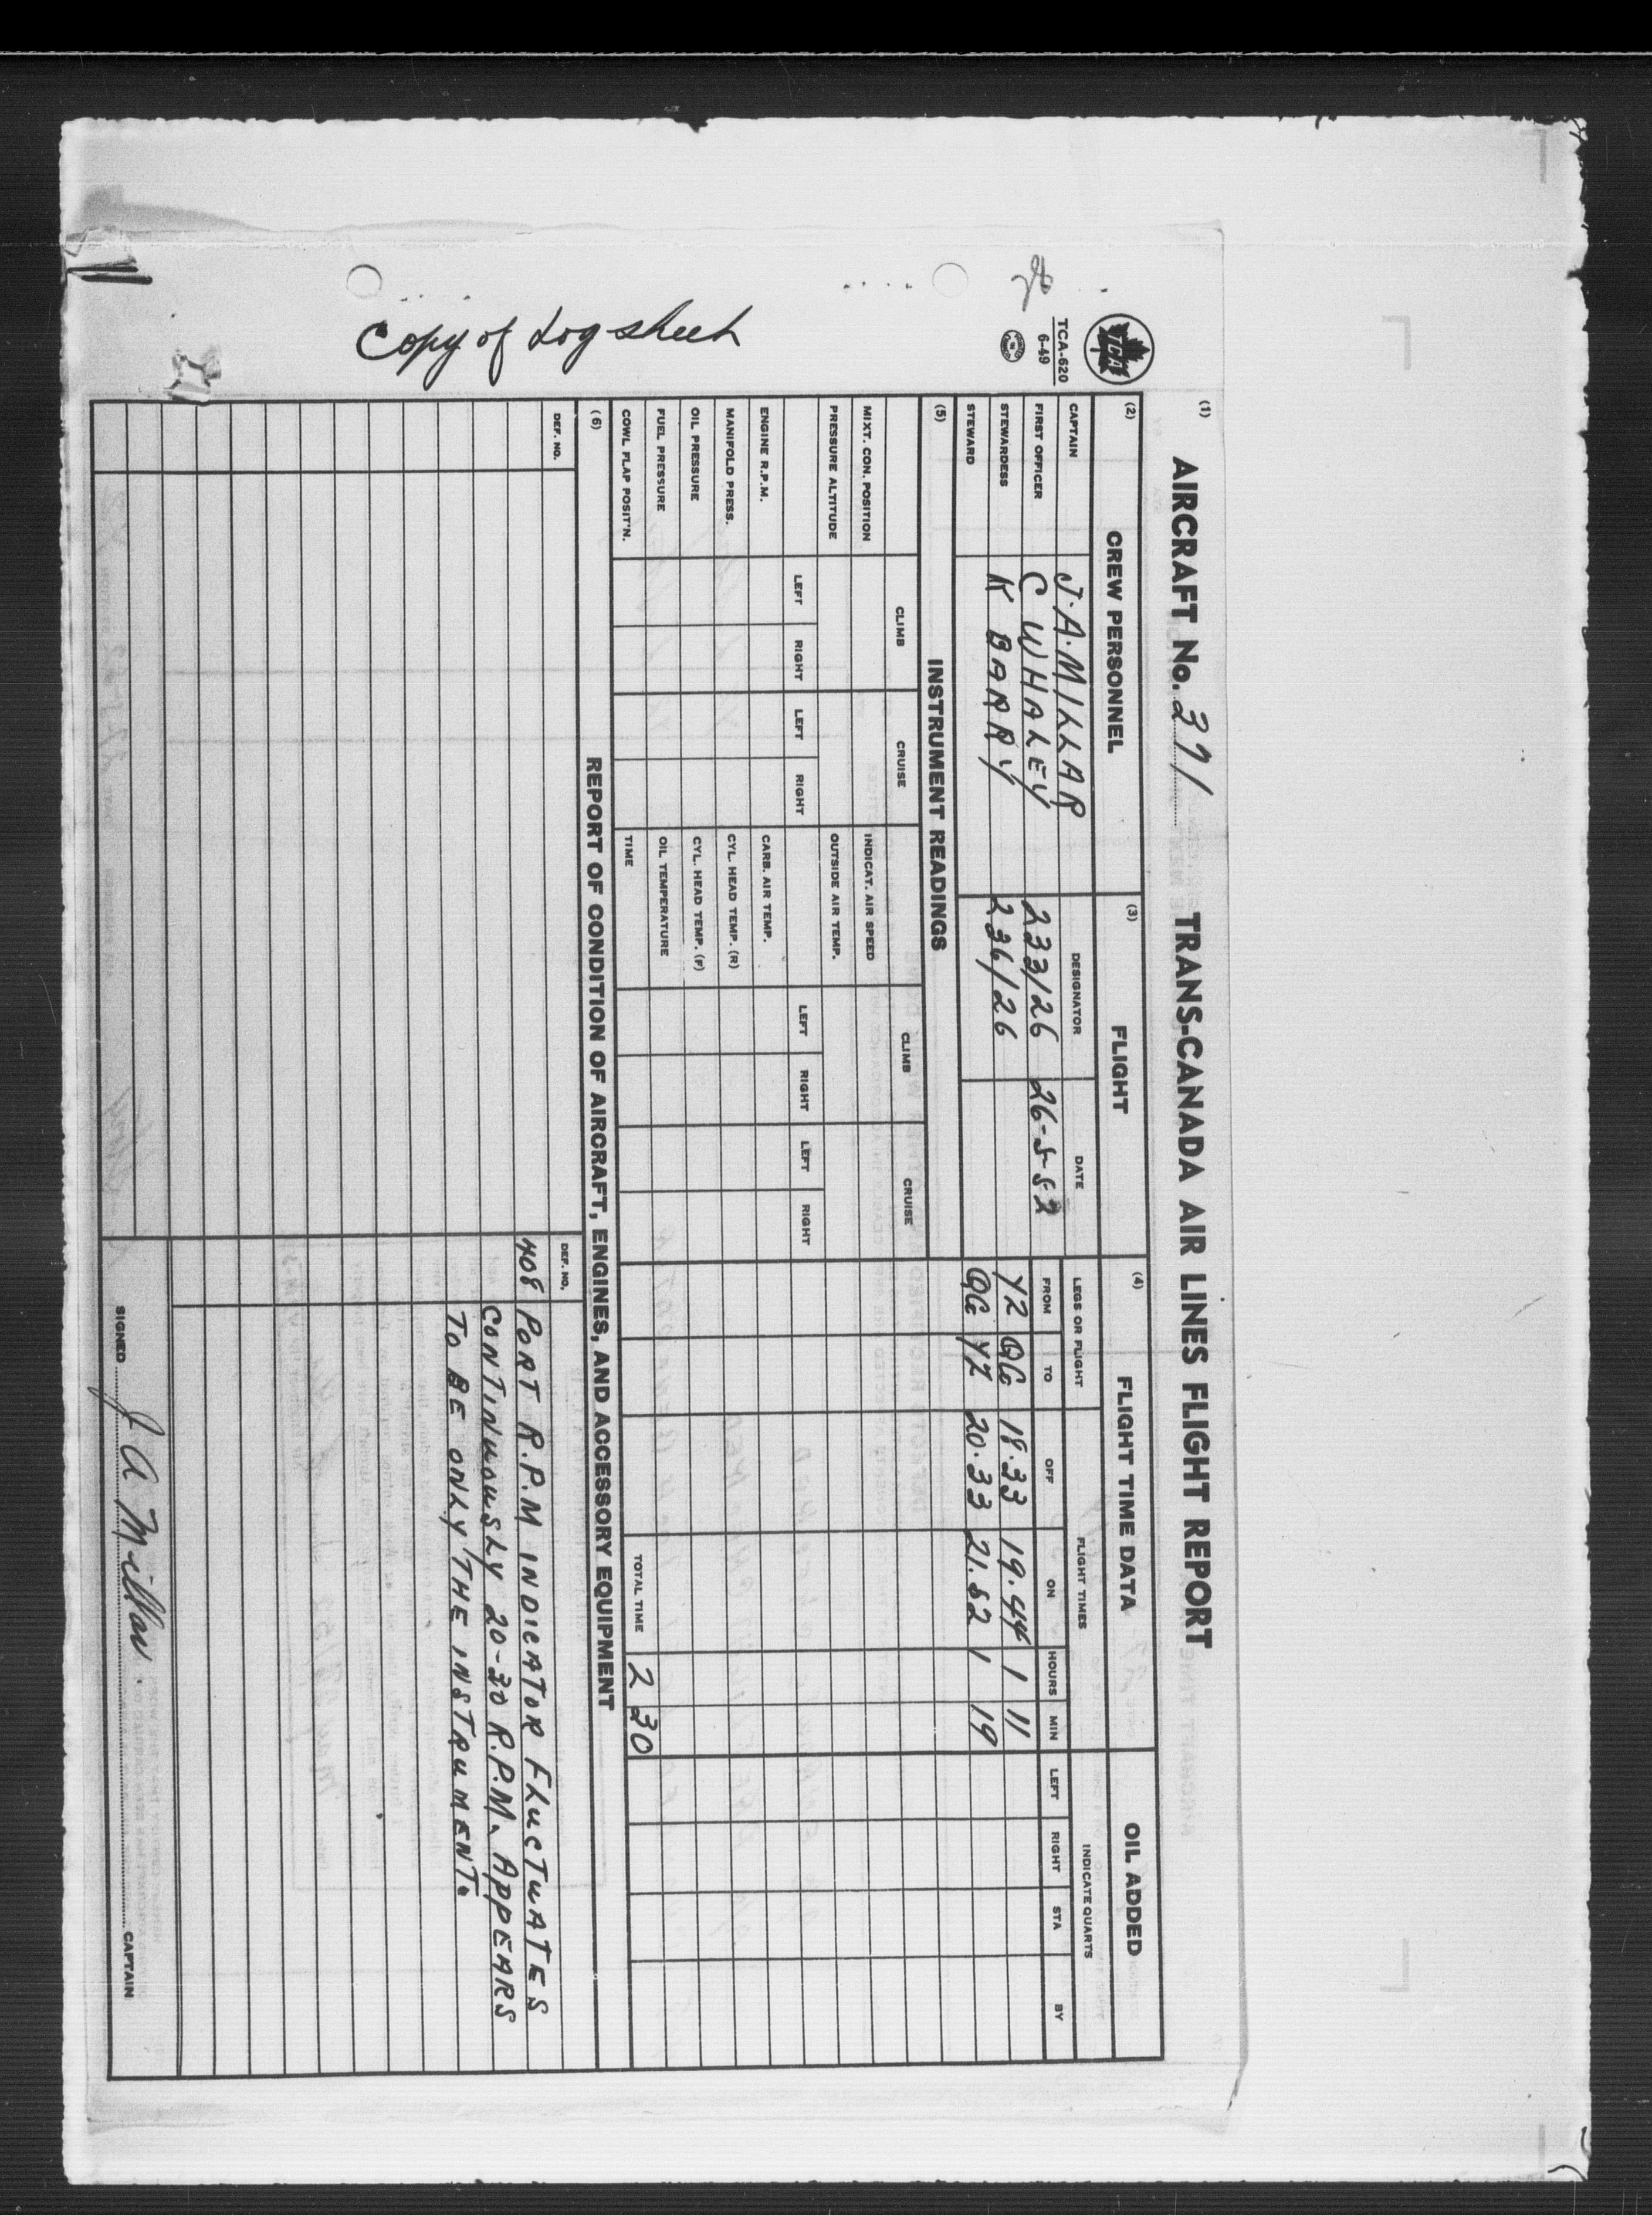 Copy of Log sheet
TCA
TCA-620
6-49
(1)
AIRCRAFT No. 371 TRANS-CANADA AIR LINES FLIGHT REPORT
(2) CREW PERSONNEL (3) FLIGHT (4) FLIGHT TIME DATA OIL ADDED
DESIGNATOR DATE LEGS OR FLIGHT FLIGHT TIMES INDICATE QUARTS
FROM TO OFF ON HOURS MIN LEFT RIGHT STA BY
CAPTAIN J.A. MILLAR
FIRST OFFICER C WHALEY 233/26 26-5-52
STEWARDESS K BARRY 236/26
STEWARD
YZ QG 18.33 19.44 1 11
QG YZ 20.33 21.52 1 19
TOTAL TIME 2 30
(5) INSTRUMENT READINGS
CLIMB CRUISE CLIMB CRUISE
MIXT. CON. POSITION INDICAT. AIR SPEED
PRESSURE ALTITUDE OUTSIDE AIR TEMP.
LEFT RIGHT LEFT RIGHT LEFT RIGHT LEFT RIGHT
ENGINE R.P.M. CARB. AIR TEMP.
MANIFOLD PRESS. CYL. HEAD TEMP. (R)
OIL PRESSURE CYL. HEAD TEMP. (F)
FUEL PRESSURE OIL TEMPERATURE
COWL FLAP POSIT'N. TIME
(6) REPORT OF CONDITION OF AIRCRAFT, ENGINES, AND ACCESSORY EQUIPMENT
DEF. NO. DEF. NO.
408 PORT R.P.M INDICATOR FLUCTUATES
CONTINUOUSLY 20-30 R.P.M. APPEARS
TO BE ONLY THE INSTRUMENT.
SIGNED J A Millar CAPTAIN